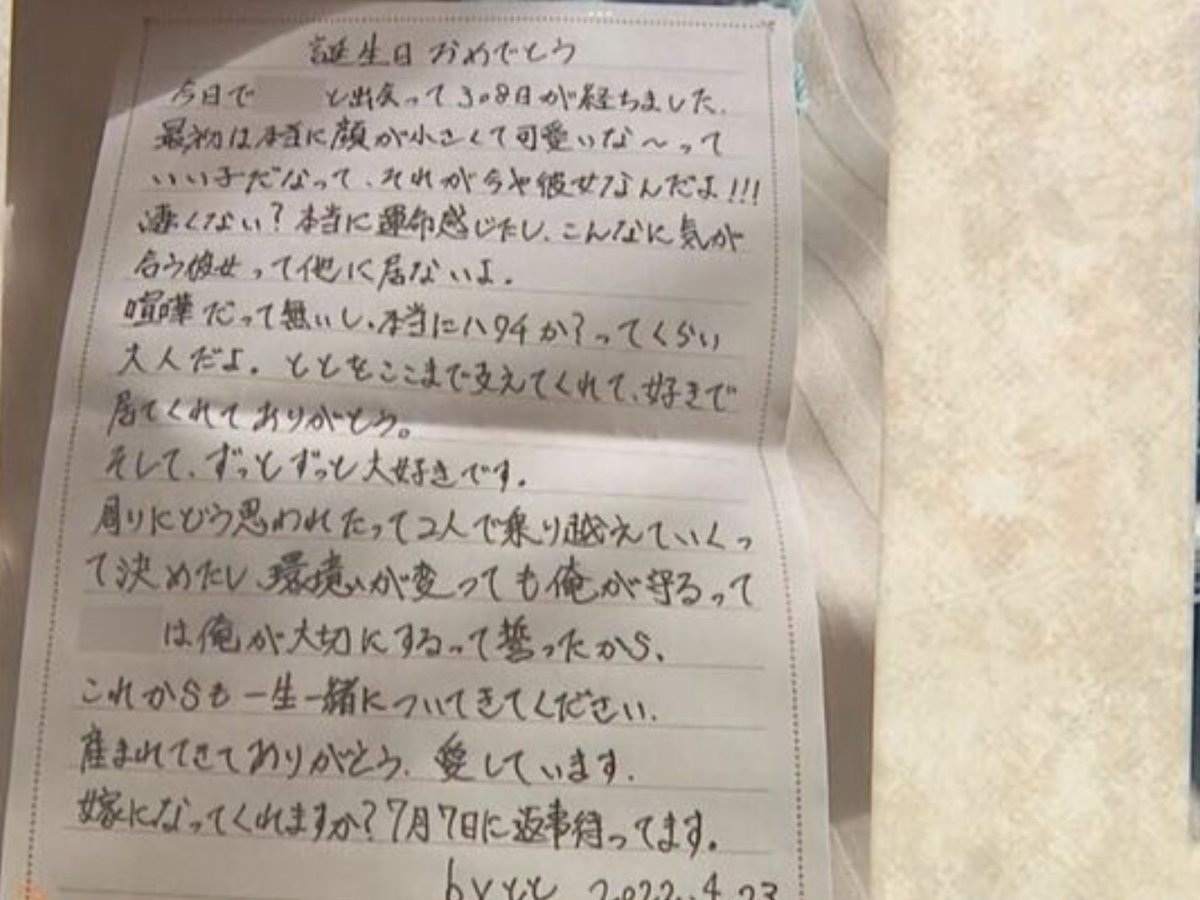 誕生日おめでとう
今日で と出会って308日が経ちました.
最初は本当に顔が小さくて可愛いな〜って
いい子だなって、それが今や彼女なんだよ!!!
凄くない?本当に運命感じたし、こんなに気が
合う彼女って他に居ないよ.
喧嘩だって無いし、本当にハタチか?ってくらい
大人だよ。ととをここまで支えてくれて、好きで
居てくれてありがとう。
そして、ずっとずっと大好きです.
周りにどう思われたって2人で乗り越えていくっ
て決めたし、環境が変っても俺が守るって
は俺が大切にするって誓ったから、
これからも一生一緒についてきてください.
産まれてきてありがとう、愛しています.
嫁になってくれますか?7月7日に返事待ってます。
byとと 2022.4.23